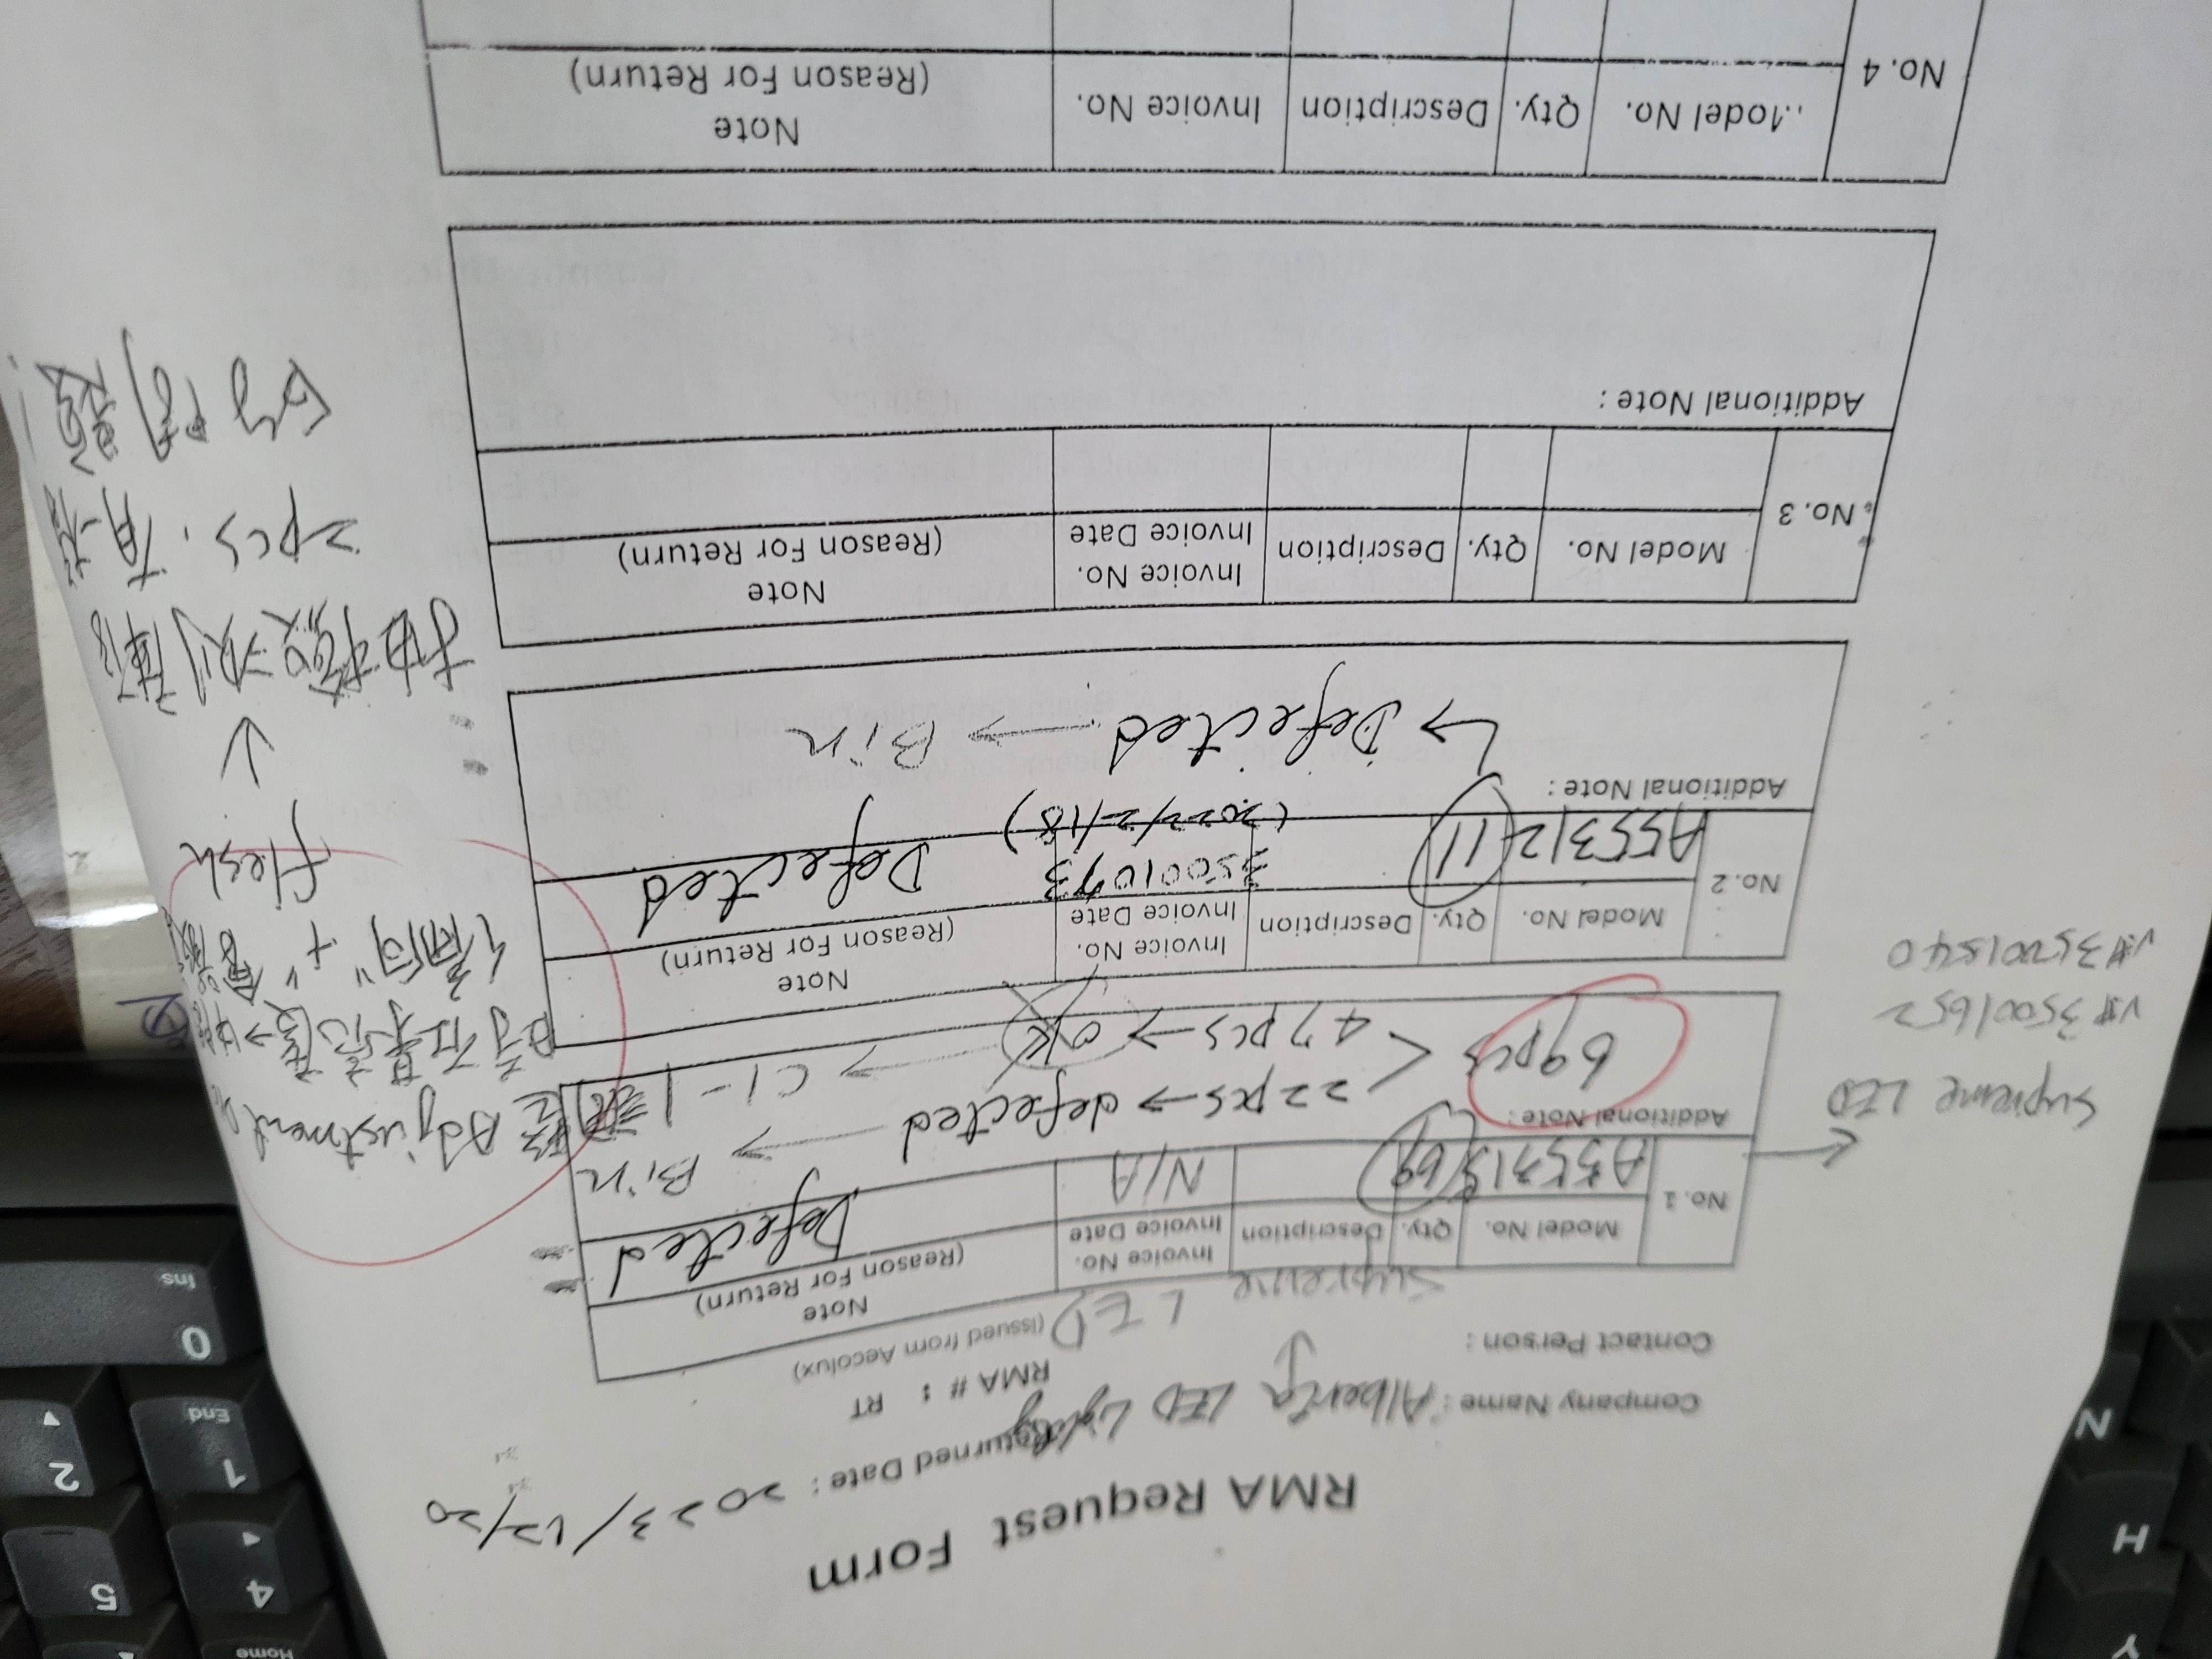 RMA Request Form
Returned Date : 2023/12/20
Company Name : Alberta LED Lighting
RMA # : RT
(Issued from Aecolux)
Contact Person :
Supreme LED
No. 1
Model No.
Qty.
Description
Invoice No.
Invoice Date
Note
(Reason For Return)
A55315
69
N/A
Defected
Additional Note :
69pcs < 22pcs → defected → Bin
47pcs → OK → C1-1
Supreme LED
V#35001652
V#35001540
Adjustment
flesh
↓
抽檢測確
2pcs, 有
的問題
No. 2
Model No.
Qty.
Description
Invoice No.
Invoice Date
Note
(Reason For Return)
A55312
11
35001073
(2022/2/18)
Defected
Additional Note :
↳ Defected → Bin
No. 3
Model No.
Qty.
Description
Invoice No.
Invoice Date
Note
(Reason For Return)
Additional Note :
No. 4
Model No.
Qty.
Description
Invoice No.
Note
(Reason For Return)
Ins
0
End
1
2
4
5
Home
N
H
Y